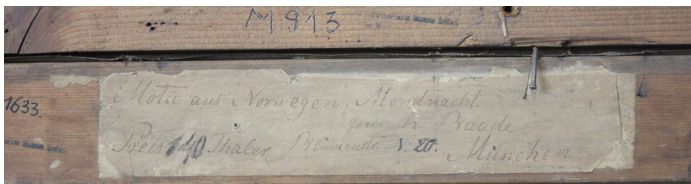 M 913
1633.
Motiv aus Norwegen, Mondnacht.
Baade
Preis 140 Thaler Blumenstr. 20. München